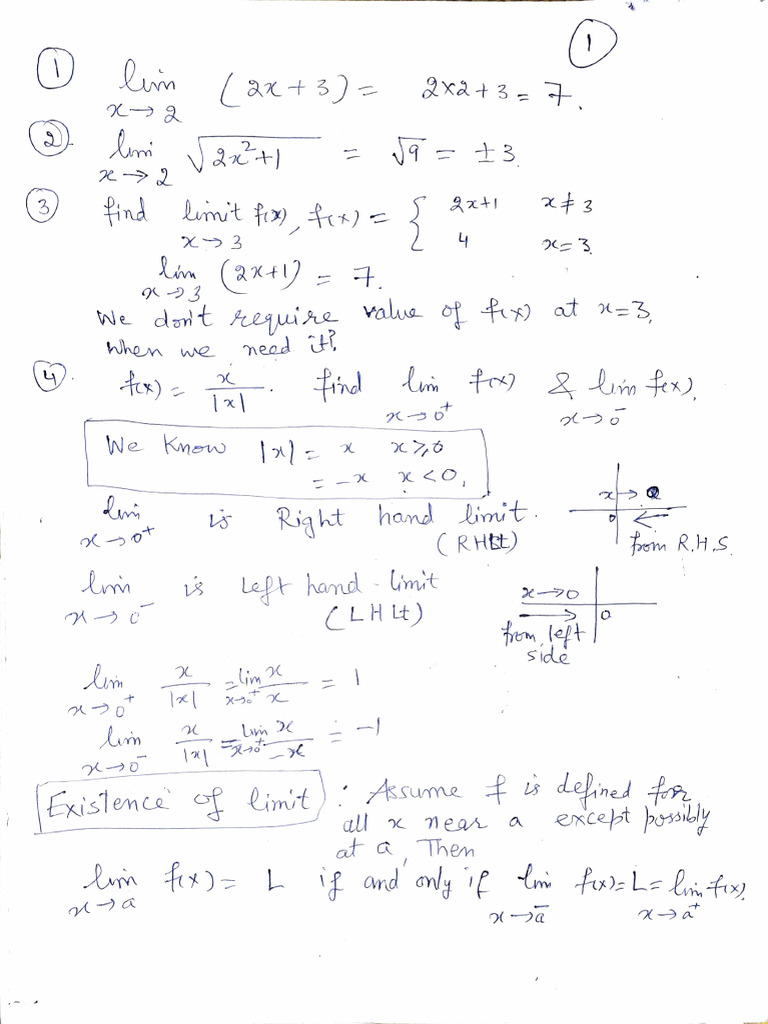 ①
① lim (2x+3) = 2×2+3 = 7.
x→2
②. lim √(2x²+1) = √9 = ±3.
x→2
③ find limit f(x), f(x) = { 2x+1 x≠3
x→3 4 x=3.
lim (2x+1) = 7.
x→3
We don't require value of f(x) at x=3.
When we need it?
④. f(x) = x/|x| . find lim f(x) & lim f(x).
x→0⁺ x→0⁻
We Know |x| = x x⩾0
= -x x<0.
lim is Right hand limit.
x→0⁺ (RHLt)
x→ 0
from R.H.S.
lim is Left hand-limit
x→0⁻ (LHLt)
x→0
0
from left
side
lim x/|x| = lim x/x = 1
x→0⁺ x→0⁺
lim x/|x| = lim x/-x = -1
x→0⁻ x→0⁺
Existence of limit : Assume f is defined for
all x near a except possibly
at a, Then
lim f(x) = L if and only if lim f(x) = L = lim f(x).
x→a x→a⁻ x→a⁺